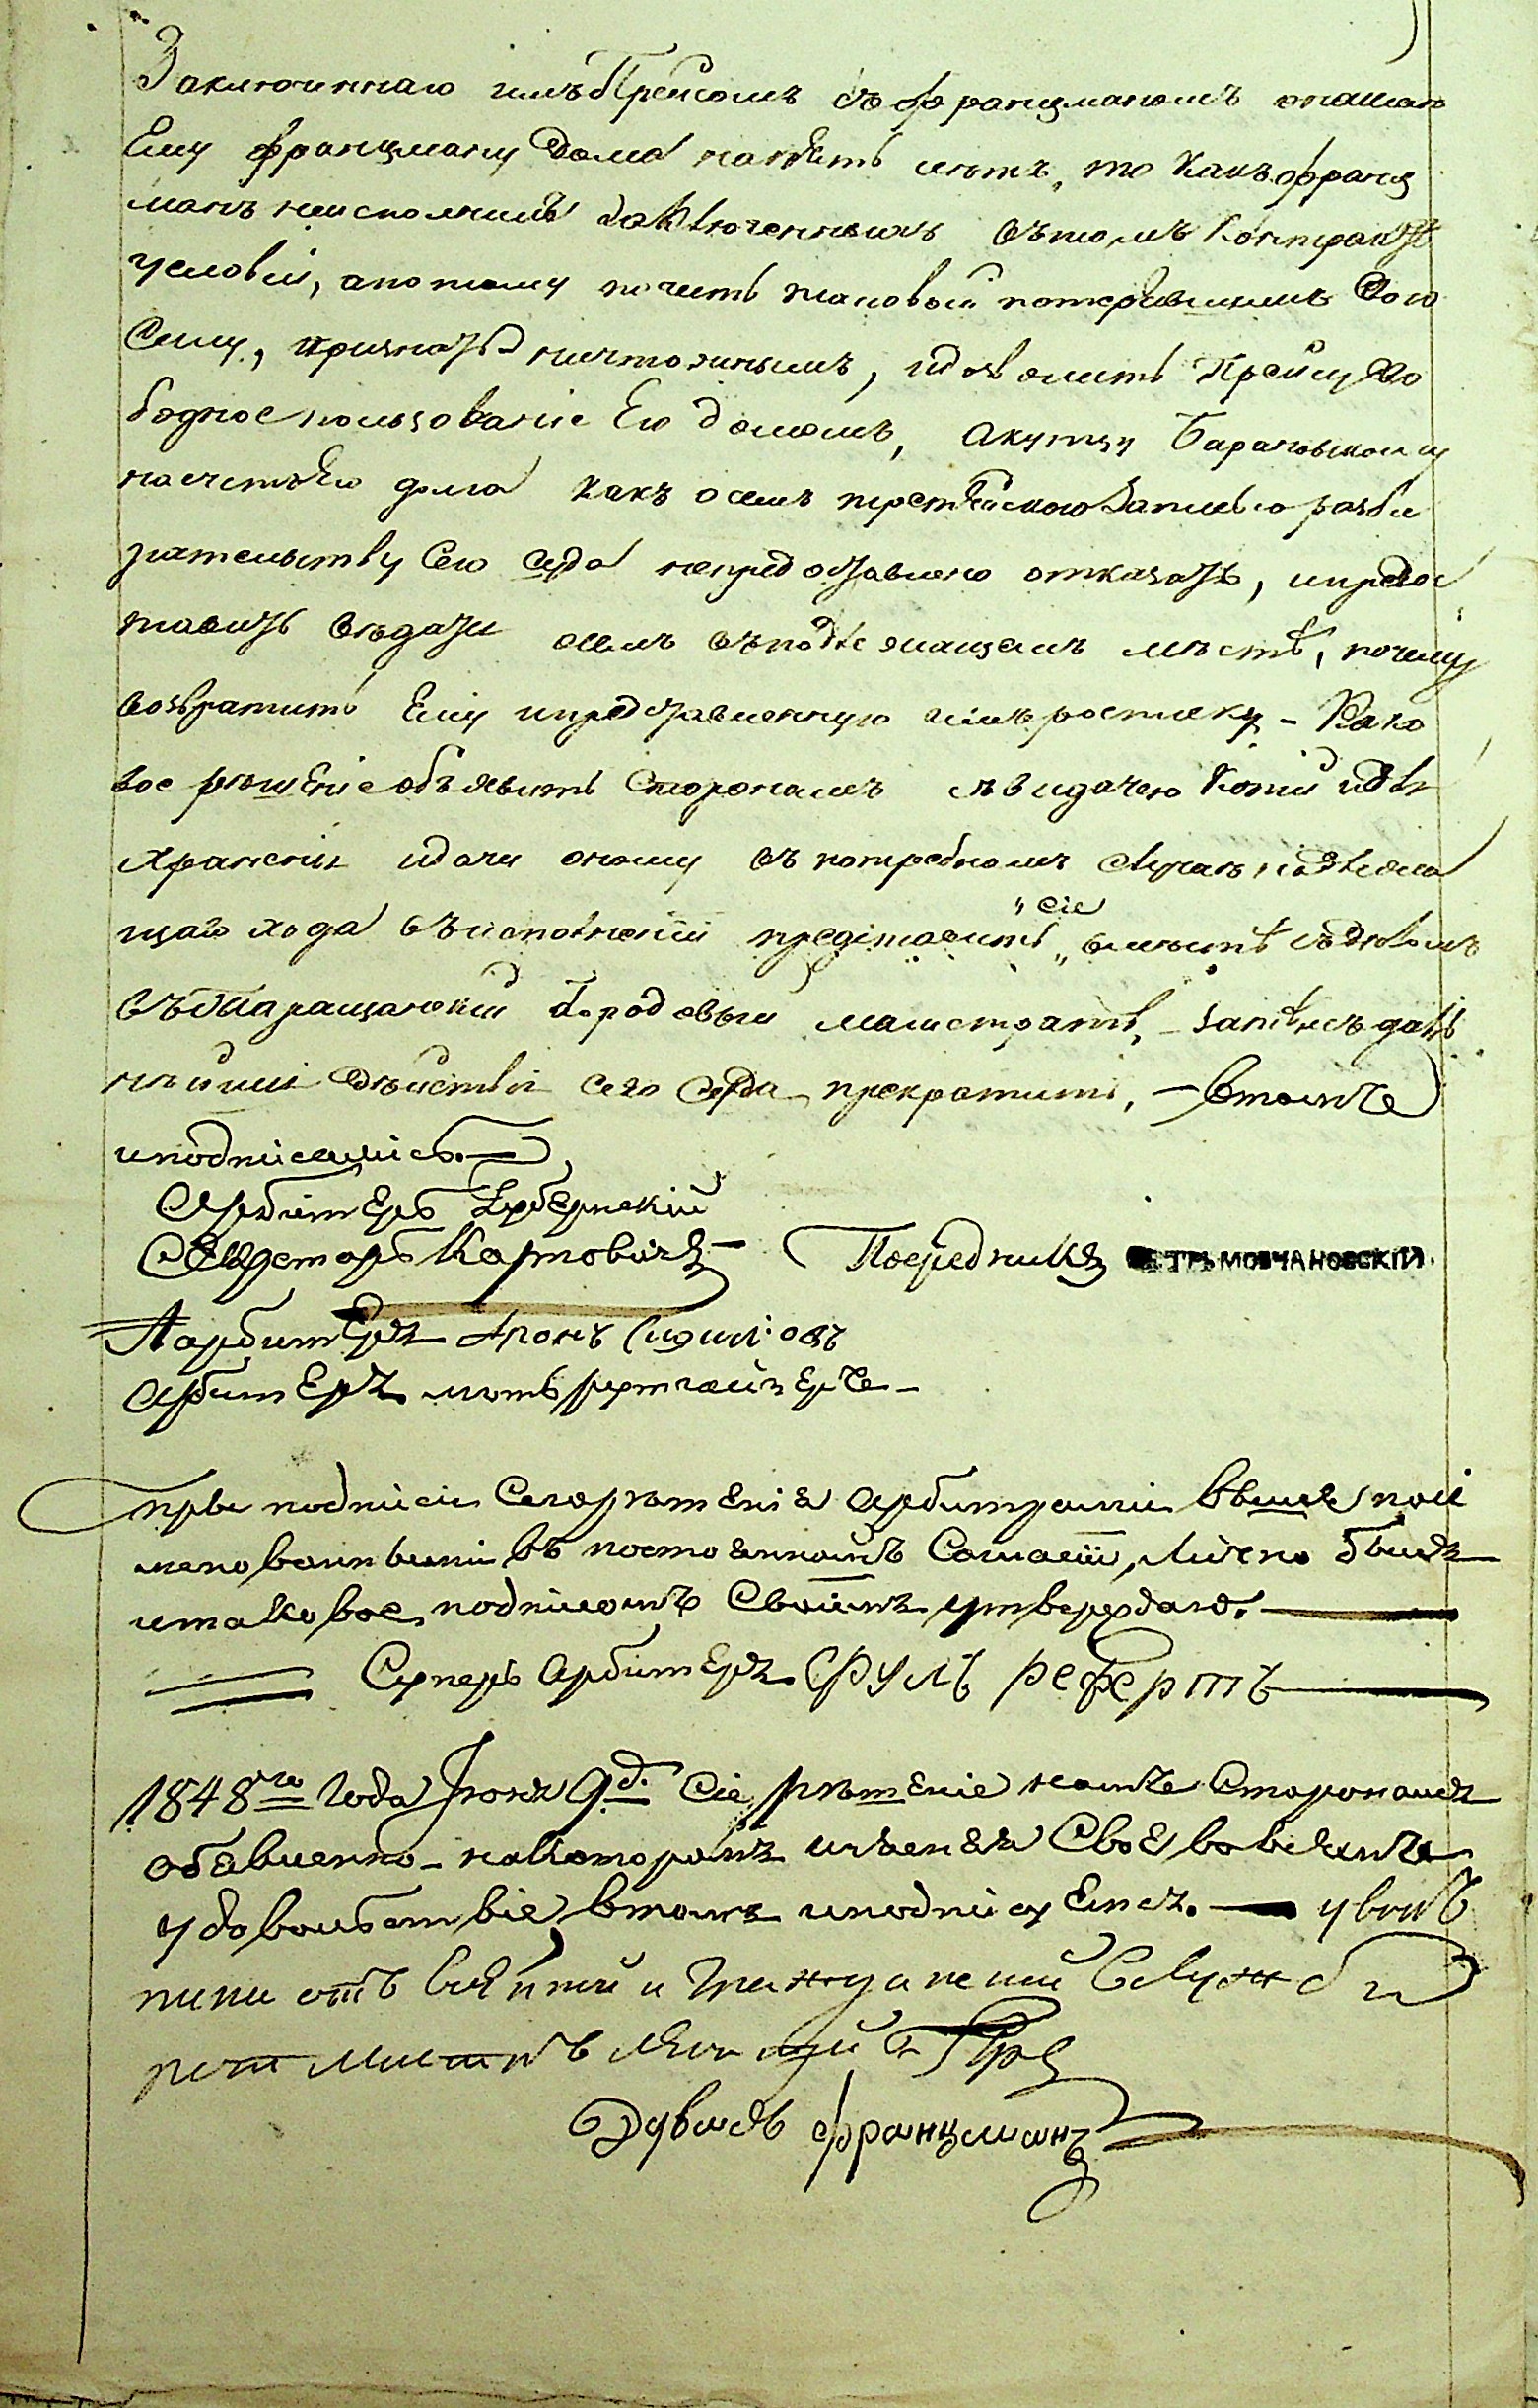 Заключеннаго имъ Прейсомъ съ Францманомъ о наймѣ
Ему Францману Дома на пять лѣтъ, то какъ Франц
манъ неисполнилъ заключенныхъ въ томъ контрактѣ
условій, а потому почесть таковой потерявшимъ Свою
Силу, признать ничтожнымъ, и дозволить Прейсу Сво
бодное пользованіе Его домомъ, а купцу Барановскому
на счетъ Его долга какъ о семъ третейскою Записью разби
рательству Сего Суда непредоставлено отказать, и предос
тавить вѣдаться о семъ въ подлежащемъ мѣстѣ, почему
возвратить Ему и представленную имъ росписку – Како
вое рѣшеніе объявить Сторонамъ съ выдачею Копій и для
храненія и дачи оному въ потребномъ случаѣ надлежа
щаго хода въ исполненіи представить „ вмѣстѣ съ дѣломъ
„ сіе
въ Таращанскій Городовый Магистратъ, – засимъ даль
нѣйшія дѣйствія сего Суда прекратить, – въ томъ
и подписались. –
Арбитеръ Губернскій
Секретарь Карповичъ – Посредникъ ПЕТРЪ МОВЧАНОВСКІЙ.
Арбитеръ Аронъ
Арбитеръ
При подписи Сего рѣшенія арбитрами вышепои
менованными въ постоянномъ Согласіи, Лично былъ
и таковое подписомъ Своимъ утверждаю. –
Суперъ Арбитеръ Сруль Рефертъ
1848го Года Іюня 9д. Сіе рѣшеніе намъ Сторонамъ
объявленно – на которомъ изъявляя Свое
удовольствіе, въ томъ и подписуемся. – уволѣ
ный отъ Воинской и Гражданской Службы
Эдуардъ Францманъ